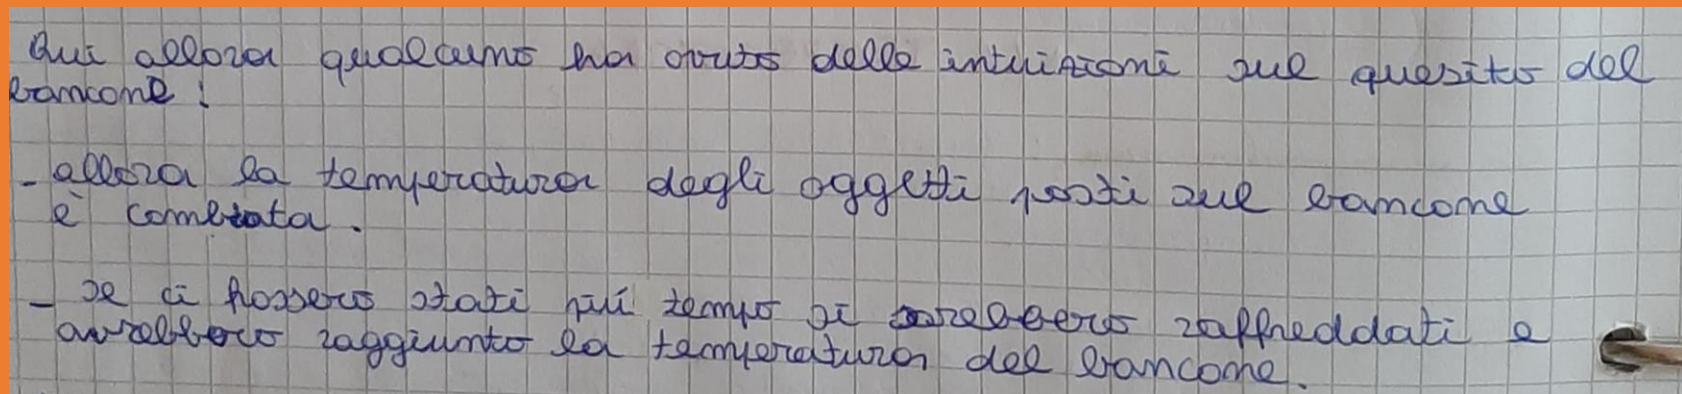 Qui allora qualcuno ha avuto delle intuizioni sul quesito del
bancone:
- allora la temperatura degli oggetti posti sul bancone
è cambiata.
- se ci fossero stati più tempo si sarebbero raffreddati e
avrebbero raggiunto la temperatura del bancone.